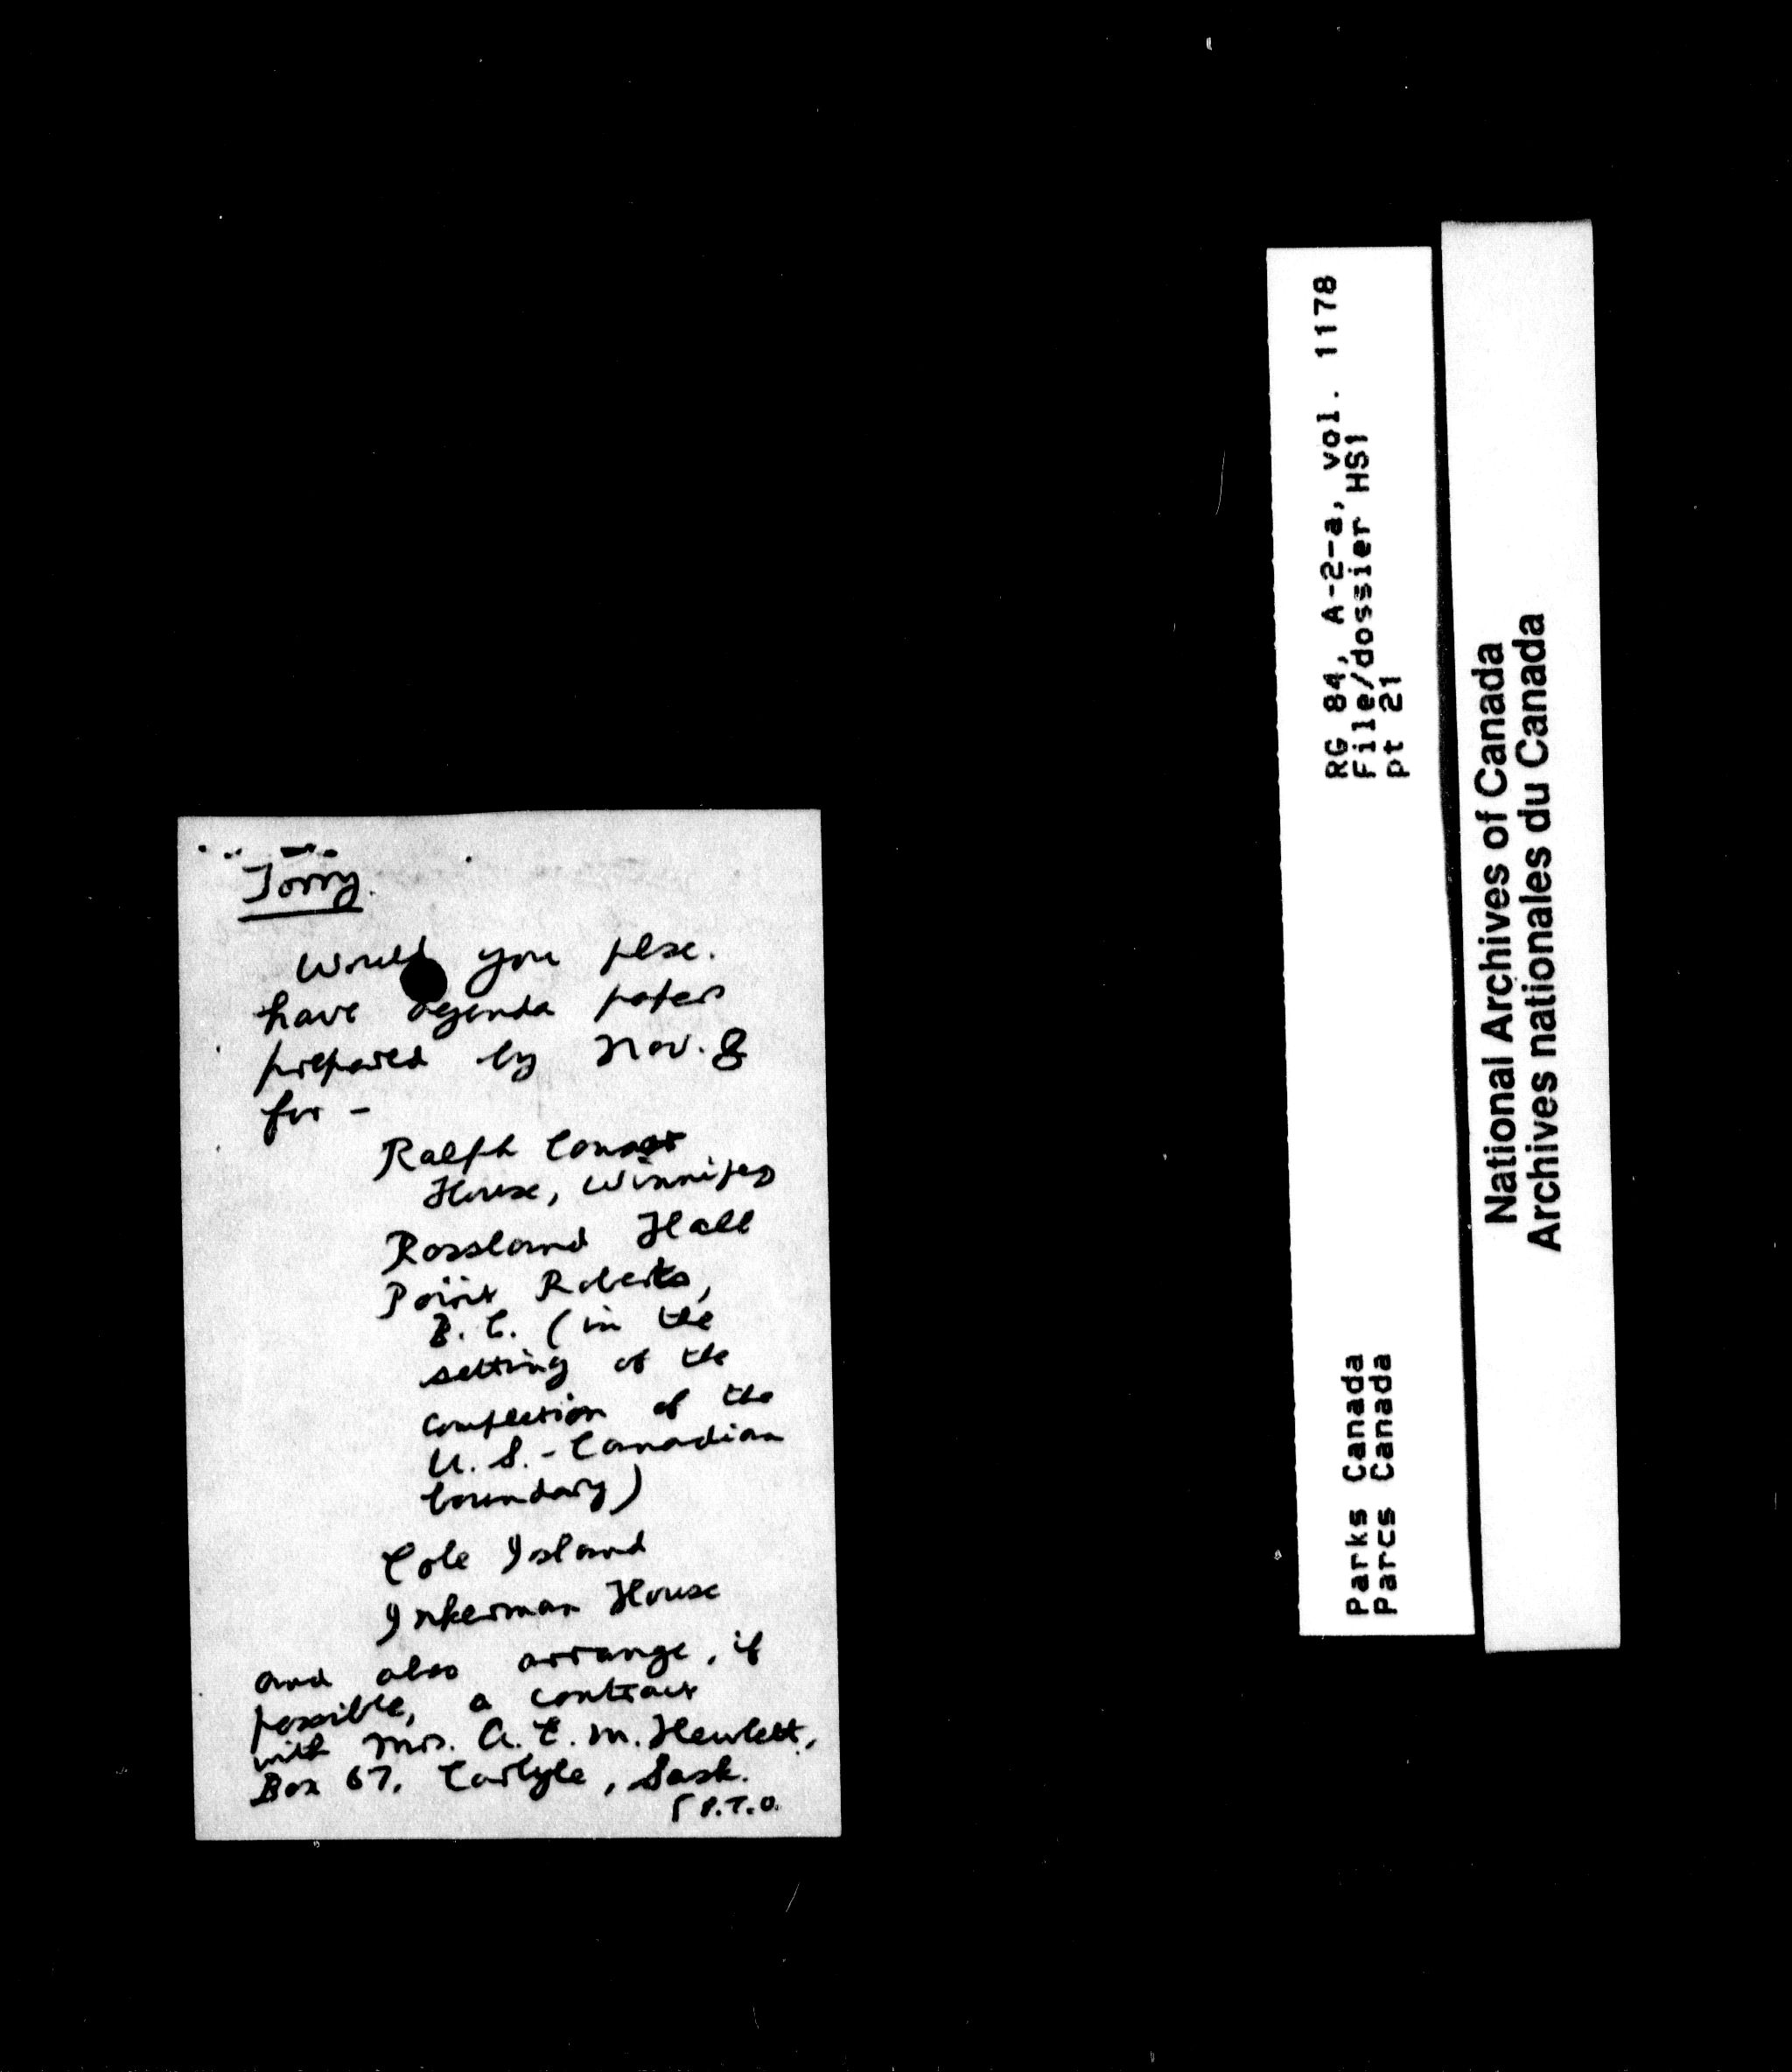 Tony.
Would you plse.
have agenda papers
prepared by Nov. 8
for -
Ralph Connor
House, Winnipeg
Rossland Hall
Point Roberts,
B.C. (in the
setting of the
completion of the
U.S.-Canadian
boundary)
Cole Island
Inkerman House
and also arrange, if
possible, a contract
with Mrs. A.E.M. Hewlett,
Box 67, Carlyle, Sask.
P.T.O.
RG 84, A-2-a, vol. 1178
File/dossier HS1
pt 21
Parks Canada
Parcs Canada
National Archives of Canada
Archives nationales du Canada